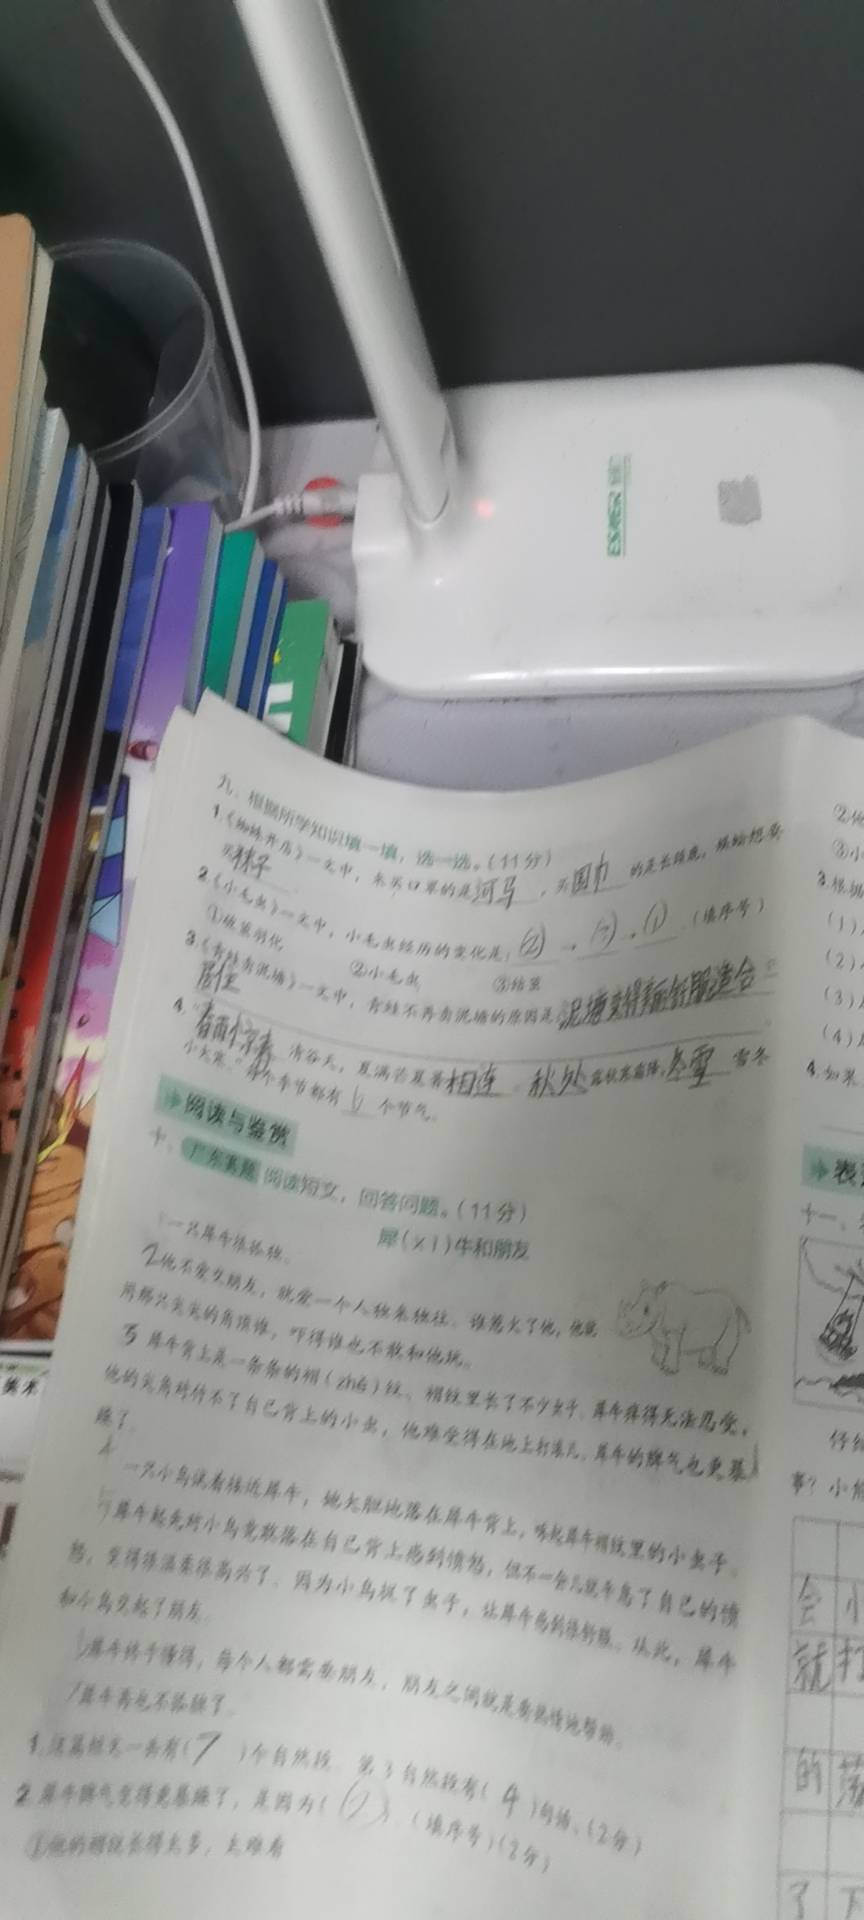 九、根据所学知识填一填，选一选。(11分)
1.《蜘蛛开店》一文中，来买口罩的是河马，买围巾的是长颈鹿，蜈蚣想要
买袜子
2.《小毛虫》一文中，小毛虫经历的变化是：② → ③ → ① (填序号)
①破茧羽化 ②小毛虫 ③结茧
3.《青蛙卖泥塘》一文中，青蛙不再卖泥塘的原因是泥塘变得舒服适合
居住
4.“春雨惊春清谷天，夏满芒夏暑相连。秋处露秋寒霜降，冬雪雪冬
小大寒。”每个季节都有6个节气。
阅读与鉴赏
十、广东真题 阅读短文，回答问题。(11分)
犀(xī)牛和朋友
1一只犀牛很孤独。
2他不爱交朋友，就爱一个人独来独往。谁惹火了他，他就
用那只尖尖的角顶谁，吓得谁也不敢和他玩。
3犀牛背上是一条条的褶(zhě)纹，褶纹里长了不少虫子，犀牛痒得无法忍受。
他的尖角对付不了自己背上的小虫，他难受得在地上打滚儿。犀牛的脾气也更暴
躁了。
4一只小鸟试着接近犀牛，她大胆地落在犀牛背上，啄起犀牛褶纹里的小虫子。
5犀牛起先对小鸟竟敢落在自己背上感到愤怒，但不一会儿就平息了自己的愤
怒，变得很温柔很高兴了。因为小鸟捉了虫子，让犀牛感到很舒服。从此，犀牛
和小鸟交起了朋友。
6犀牛终于懂得，每个人都需要朋友，朋友之间就是要热情地帮助。
7犀牛再也不孤独了。
1.这篇短文一共有(7)个自然段，第3自然段有(4)句话。(2分)
2.犀牛脾气变得更暴躁了，是因为(②)。(填序号)(2分)
①他的褶纹长得太多，太难看
②
③小
3.根据
(1)
(2)
(3)
(4)
4.如果
表
十一、
仔
事？小
会 小
就 打
的 荡
了 下
美术